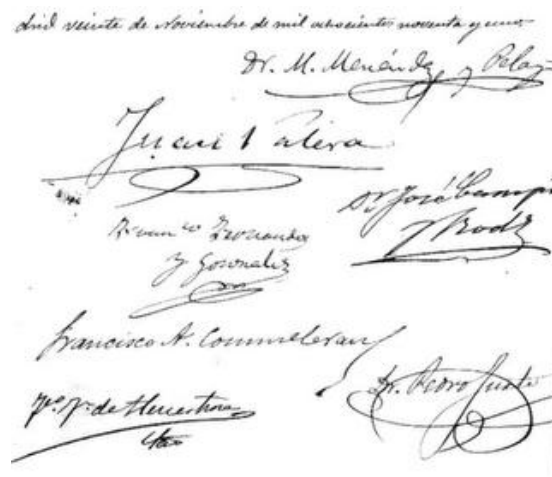 drid veinte de Noviembre de mil ochocientos noventa y uno
Dr. M. Menéndez y Pelay
Juan Valera
Dr. José Campi
y Rodz
Franco Fernandez
y Gonzalez
Francisco A. Commeleran
de Henestrosa
Dr. Pedro